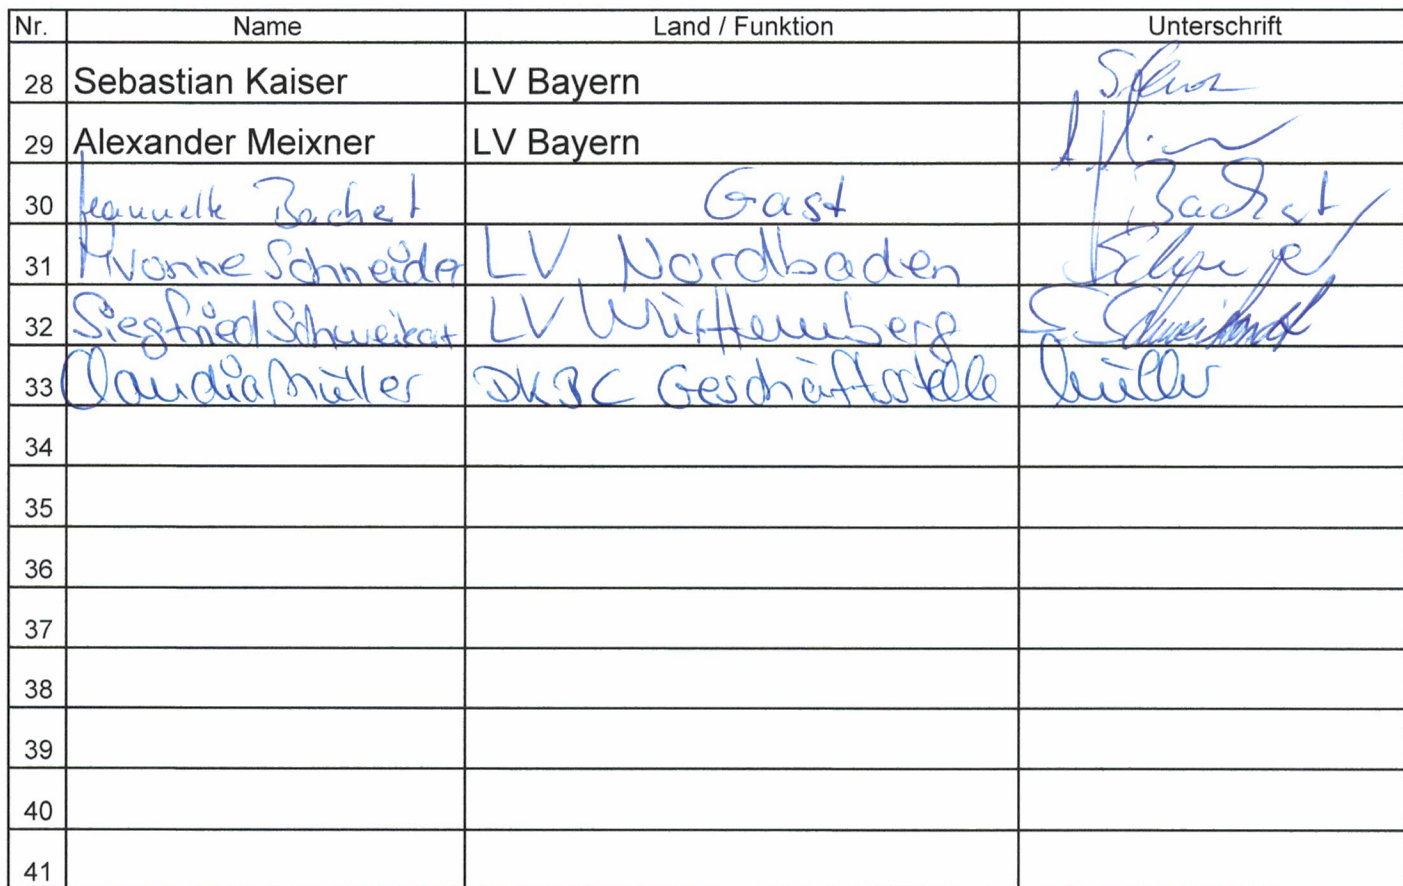 Nr. Name Land / Funktion Unterschrift
28 Sebastian Kaiser LV Bayern
29 Alexander Meixner LV Bayern
30 Jeannette Bachert Gast
31 Yvonne Schneider LV Nordbaden
32 Siegfried Schweikart LV Württemberg
33 Claudia Müller DKBC Geschäftsstelle Müller
34
35
36
37
38
39
40
41